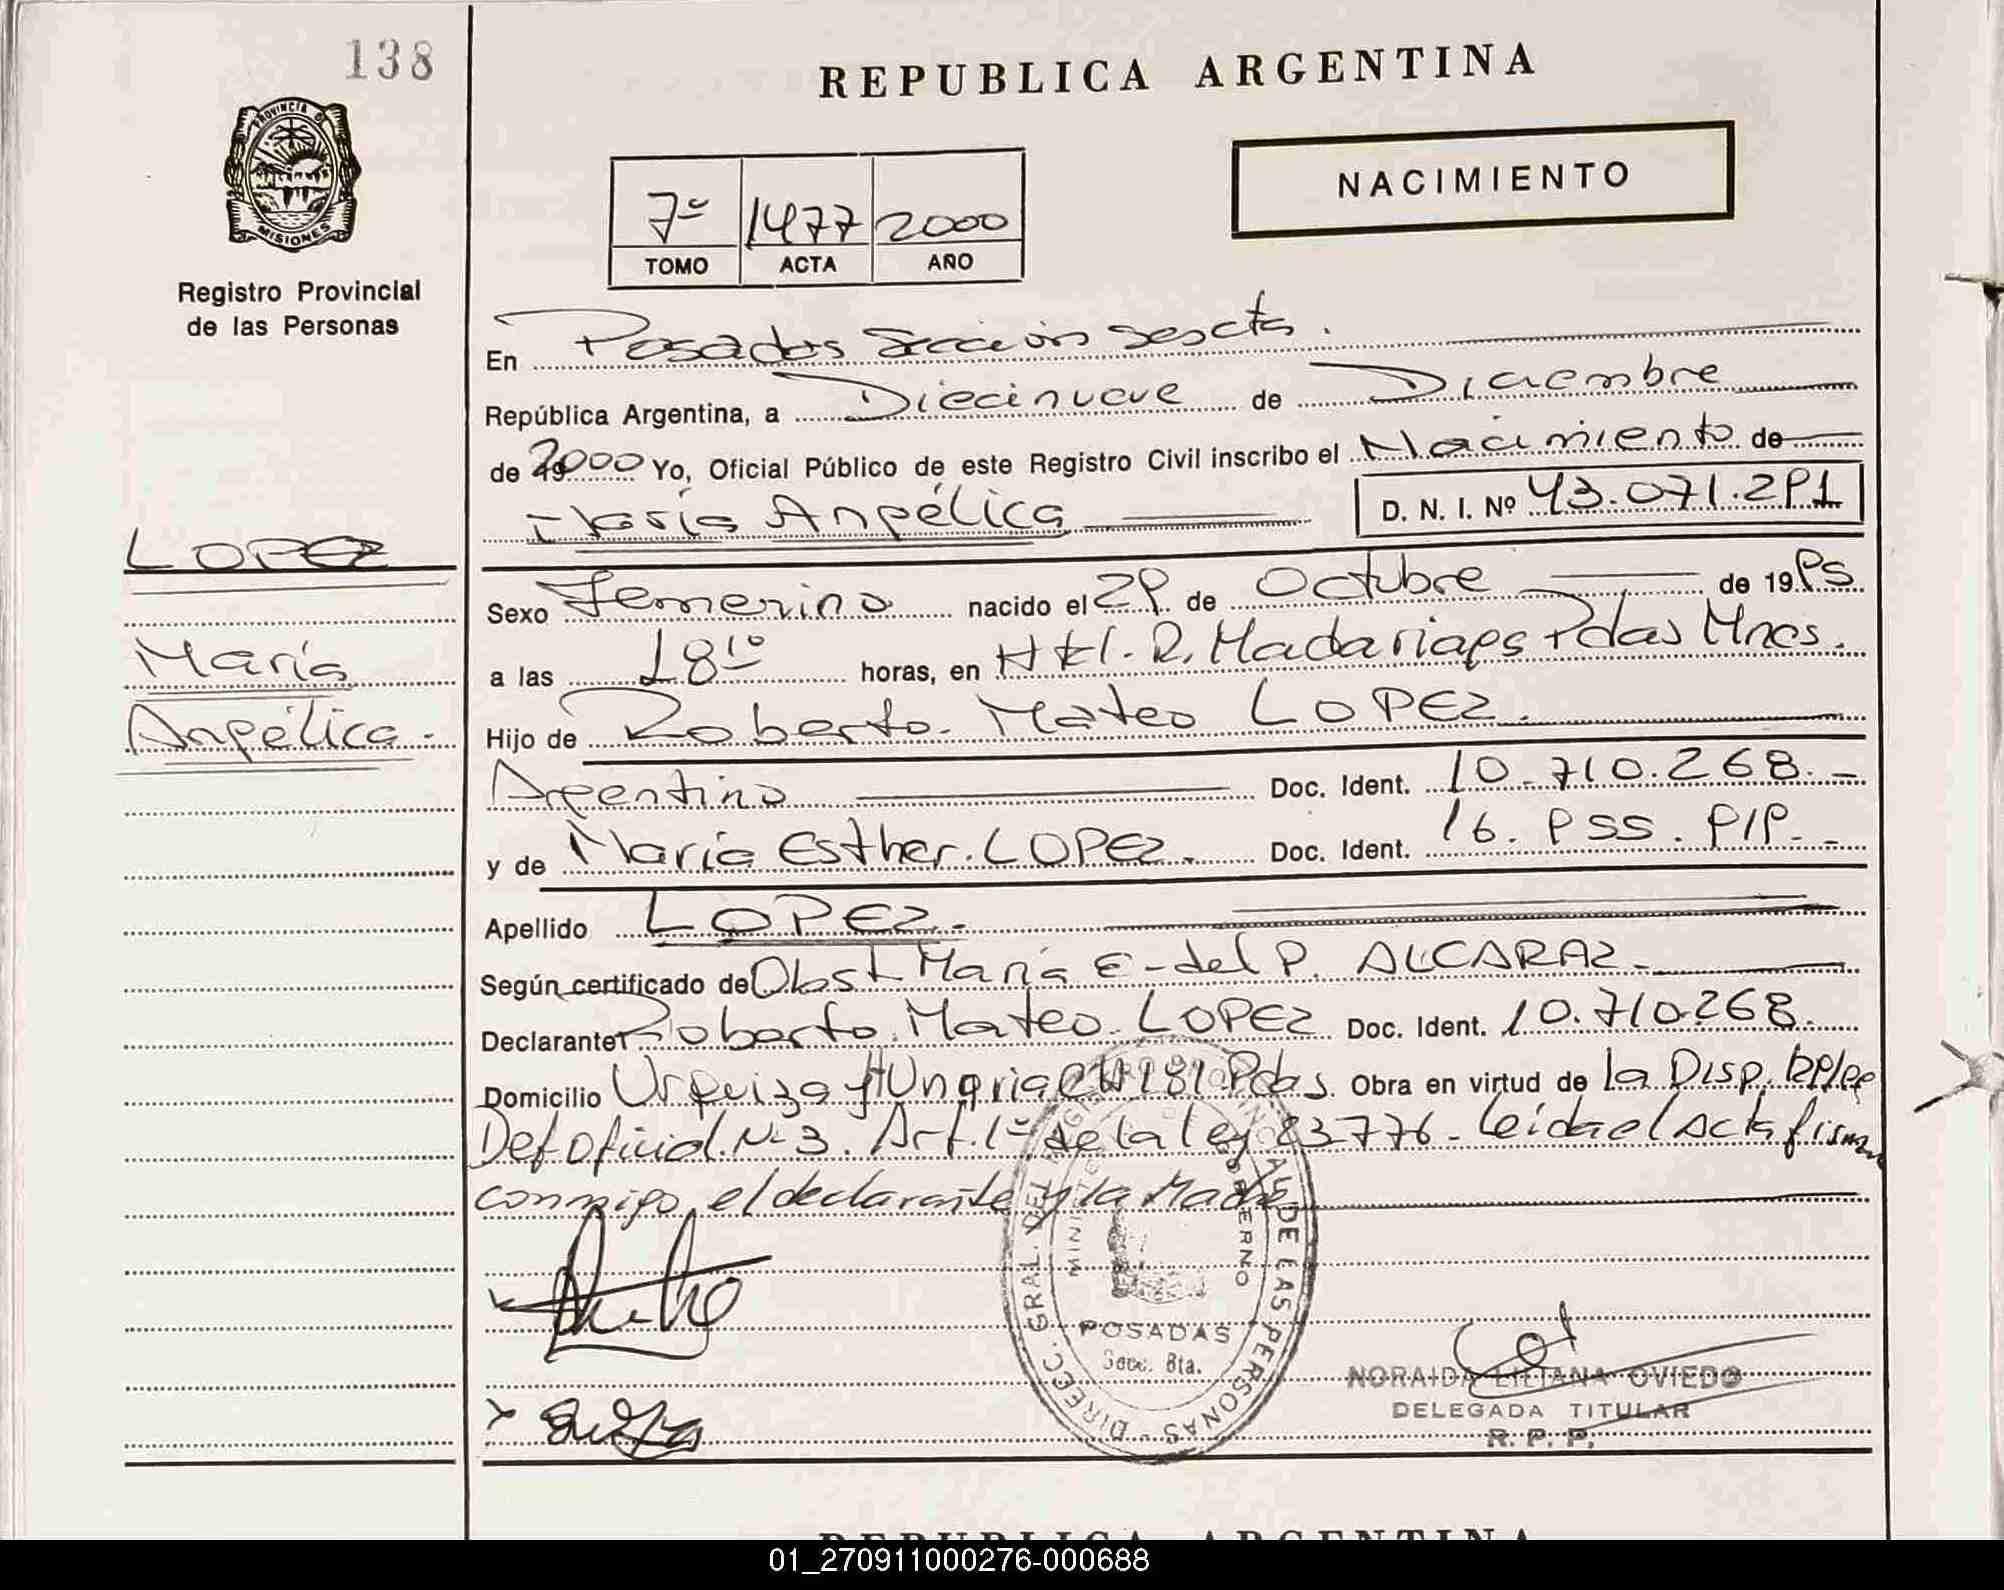 138
REPUBLICA ARGENTINA
PROVINCIA DE
MISIONES
NACIMIENTO
7º 1477 2000
TOMO ACTA AÑO
Registro Provincial
de las Personas
En Posadas Sección sexta.
República Argentina, a Diecinueve de Diciembre
de 2000 Yo, Oficial Público de este Registro Civil inscribo el Nacimiento de
María Angélica D. N. I. Nº 43.071.291
LOPEZ
María
Angélica.
Sexo Femenino nacido el 29 de Octubre de 1995
a las 18 10 horas, en Htl. R. Madariaga Pdas Mnes.
Hijo de Roberto Mateo LOPEZ.
Argentino Doc. Ident. 10.710.268.-
y de María Esther LOPEZ. Doc. Ident. 16.955.919.-
Apellido LOPEZ.
Según certificado de Obst. María E. del P. ALCARAZ.
Declarante Roberto Mateo LOPEZ Doc. Ident. 10.710.268.
Domicilio Urquiza y Hungria CH 181 Pdas. Obra en virtud de la Disp.
Def Oficial Nº 3. Art. 1º de la ley 23.776. leida el Acta firma
conmigo el declarante y la Madre
DIREC. GRAL. DEL DE LAS PERSONAS
POSADAS
Secc. 6ta.
NORAIDA LILIANA OVIEDO
DELEGADA TITULAR
R. P. P.
REPUBLICA ARGENTINA
01_270911000276-000688